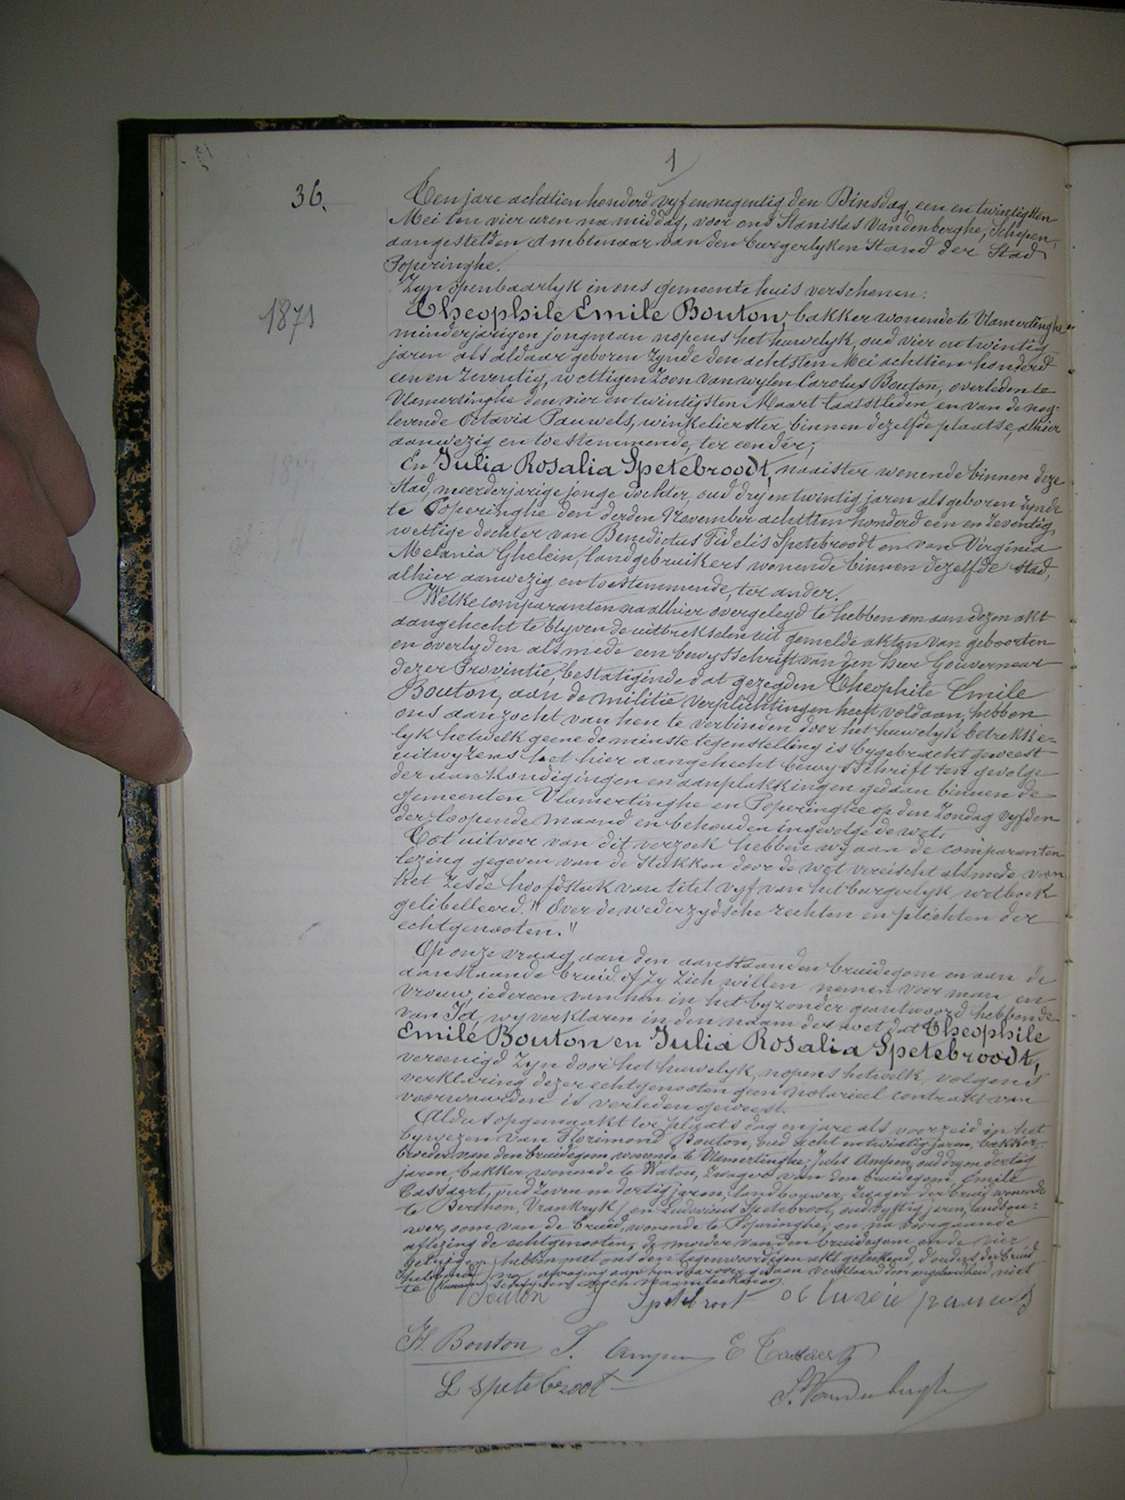 1
36.
Ten jare achttien honderd vyf en negentig, den Dinsdag, een en twintigsten
Mei ten vier uren na middag, voor ons Stanislas Vandenberghe, Schepen,
aangestelden ambtenaar van den burgerlyken Stand der Stad
Poperinghe.
Zyn openbaarlyk in ons gemeentehuis verschenen:
1871
Theophile Emile Bouton, bakker wonende te Vlamertinghe
minderjarigen jongman nopens het huwelyk, oud vier en twintig
jaren als aldaar geboren zynde den achtsten Mei achttien honderd
een en zeventig, wettigen zoon van wylen Carolus Bouton, overleden te
Vlamertinghe den vier en twintigsten Maart laatstleden, en van de nog
levende Octavia Pauwels, winkelierster, binnen dezelfde plaatse, alhier
aanwezig en toestemmende, ter eender;
En Julia Rosalia Spetebroodt, naaister wonende binnen deze
Stad, meerderjarige jonge dochter, oud dry en twintig jaren als geboren zynde
te Poperinghe den derden November achttien honderd een en zeventig,
wettige dochter van Benedictus Fidelis Spetebroodt en van Virginia
Melania Ghelein, landgebruikers wonende binnen dezelfde stad,
alhier aanwezig en toestemmende, ter ander.
Welke comparanten na alhier overgelegd te hebben om aan dezen akt
aangehecht te blyven de uitbreksels uit gemelde akten van geboorten
en overlyden alsmede een bewysschrift van den heer Gouverneur
dezer Provintie, bestatigende dat gezegden Theophile Emile
Bouton, aan de militie verplichtingen heeft voldaan, hebben
ons aanzocht van hen te verbinden door het huwelyk betrekke-
lyk hetwelk geene de minste tegenstelling is bygebracht geweest
uitwyzens het hier aangehecht bewysschrift ten gevolge
der aankondigingen en aanplakkingen gedaan binnen de
gemeenten Vlamertinghe en Poperinghe op den Zondag vyfden
der loopende maand en behouden ingevolge de wet.
Tot uitvoer van dit verzoek hebben wy aan de comparanten
lezing gegeven van de stukken door de wet vereischt alsmede van
het zesde hoofdstuk van titel vyf van het burgerlyk wetboek
gelibelleerd: "Over de wederzydsche rechten en plichten der
echtgenooten."
Op onze vraag aan den aanstaanden bruidegom en aan de
aanstaande bruid of zy zich willen nemen voor man en
vrouw, iedereen van hen in het byzonder geantwoord hebbende
van Ja, wy verklaren in den naam der wet dat Theophile
Emile Bouton en Julia Rosalia Spetebroodt,
vereenigd zyn door het huwelyk, nopens hetwelk, volgens
verklaring dezer echtgenooten geen notarieel contrakt van
voorwaarden is verleden geweest.
Aldus opgemaakt ter plaats dag en jare als voorzeid in het
bywezen van Florimond Bouton, oud acht en twintig jaren, bakker,
broeder van den bruidegom wonende te Vlamertinghe; Jules Ampen, oud dry en dertig
jaren, bakker, wonende te Watou, zwager van den bruidegom, Emile
Cassaert, oud zeven en dertig jaren, landbouwer, zwager der bruid wonende
te Berthen, Vrankryk, en Ludovicus Spetebroot, oud vyftig jaren, landbou-
wer, oom van de bruid, wonende te Poperinghe, en na voorgaande
aflezing de echtgenooten, de moeder van den bruidegom en de vier
getuigen hebben met ons den tegenwoordigen akt geteekend, d'ouders der bruid
na afvraging aan hen daarover gedaan verklaard den niet
te kunnen schryven noch naamteekenen.
Bouton Spetebroot octavie pauwels
H. Bouton J. Ampen E Cassaert
L Spetebroot S. Vandenberghe